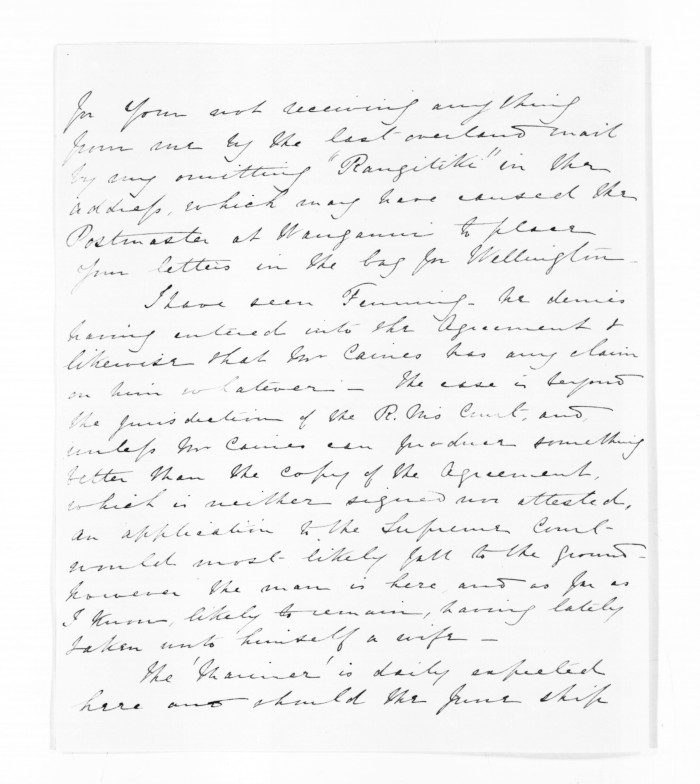 for your not receiving anything
from me by the last overland mail
by my omitting "Rangitiki" in the
address, which may have caused the
Postmaster at Wanganui to place
your letters in the bag for Wellington -
I have seen Fenning - he denies
having entered into the Agreement &
likewise that Mr Caines has any claim
on him whatever - The case is beyond
the jurisdiction of the R. M's Court, and
unless Mr Caines can produce something
better than the copy of the Agreement,
which is neither signed nor attested,
an application to the Supreme Court
would most likely fall to the ground -
however the man is here and as far as
I know, likely to remain, having lately
taken unto himself a wife -
The 'Mariner' is daily expected
here and should the June ship